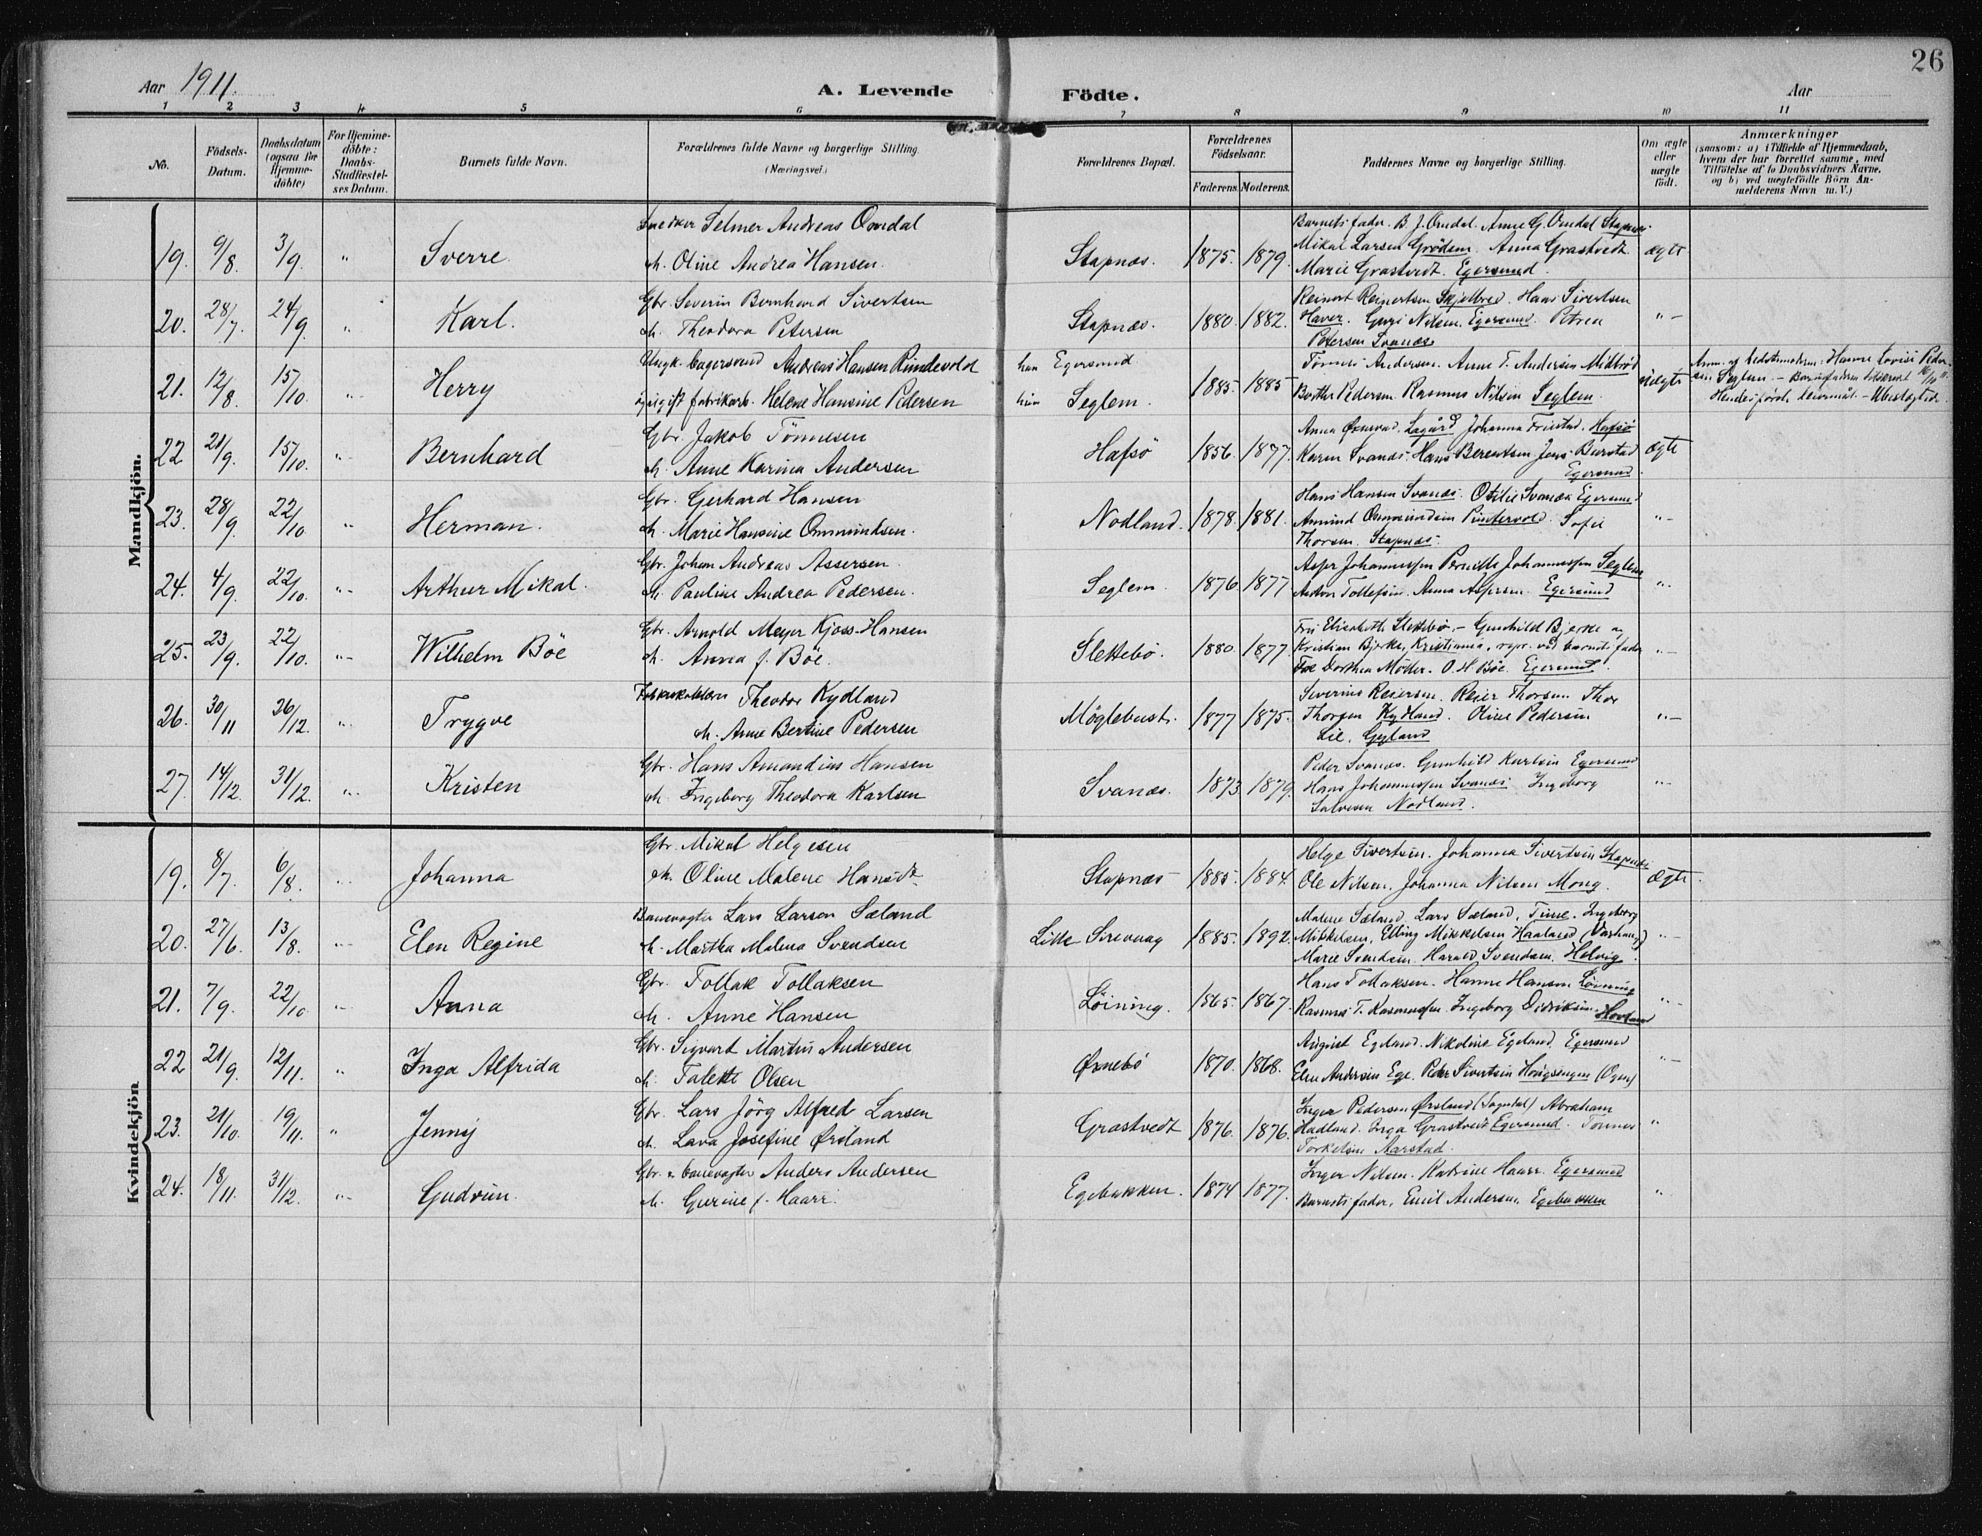 26
Aar 1911.
A. Levende Födte.
Aar
1 2 3 4 5 6 7 8 9 10 11
No.
Födsels-Datum.
Daabsdatum (ogsaa for Hjemmedöbte)
For Hjemmedöbte: Daabs-Stadfæstelses Datum.
Barnets fulde Navn.
Forældrenes fulde Navne og borgerlige Stilling. (Næringsvei.)
Forældrenes Bopæl.
Forældrenes Födselsaar.
Faderens. Moderens.
Faddernes Navne og borgerlige Stilling.
Om ægte eller uægte födt.
Anmærkninger
(saasom: a) i Tilfælde af Hjemmedaab, hvem der har forrettet samme, med Tilföielse af to Daabsvidners Navne, og b) ved uægtefödte Börn Anmelderens Navn m. V.)
Mandkjön.
19. 9/8 3/9 " Sverre. Snedker Selmer Andreas Omdal
M. Oline Andrea Hansen. Stapnæs. 1875. 1879.
Barnets fader. B. J. Omdal. Anne G. Omdal Stapnæs.
Mikal Larsen Grødem. Anna Grastvedt
Marie Grastvedt. Egersund. ægte
20. 28/7 24/9 " Karl. Gbr. Severin Bernhard Sivertsen
M. Theodora Petersen Stapnæs. 1880. 1882.
Reinert Reinertsen Skjelbred. Hans Sivertsen
Haver. Guri Nilsen. Egersund. Petrea
Petersen Svanæs "-
21. 12/8 15/10. " Herry Ungk. Andreas Hansen Rundevold
fabrikarb. Helene Hansine Pedersen
han Egersund
hun Seglem. 1885. 1885
Tønnes Andersen. Anne T. Andersen Midbrød
Berthe Pedersen Rasmus Nilsen Seglem. uægte
Seglem - Barnefaderen 16/10 11.
22 21/9. 15/10. " Bernhard Gbr. Jakob Tönnesen
M. Anne Karina Andersen Hafsø 1856. 1877.
Lagård Johanna Friestad. Hafsø
Karen Svanæs Hans Berentsen Jens
Egersund. Ægte
23. 28/9 22/10 " Herman. Gbr. Gerhard Hansen
M. Marie Hansine Ommundsen. Nodland. 1878. 1881.
Hans Hansen Svanæs. Otilie Svanæs Egersund
Amund Ommundsen Puntervold. Sofie
Thorsen. Stapnæs. "-
24. 4/9. 22/10. "- Arthur Mikal. Gbr. Johan Andreas Assersen.
M. Pauline Andrea Pedersen. Seglem. 1876 1877
Asser Johannessen Pernille Johannessen Seglem
Anton Tollefsen. Anna Assersen. Egersund "-
25. 23/9. 22/10. "- Wilhelm Böe Gbr. Arnold Meyer Kjoss-Hansen
M. Anna f. Böe. Slettebö. 1880. 1877.
Fru Elisabeth Slettebö. - Gunhild Bjerke og
Kristian Bjerke, Kristiania, repr. ved barnets fader
Dorthea Möller. O. H. Böe. Egersund. "-
26. 30/11 26/12. " Trygve Theodor Kydland
M. Anne Bertine Pedersen Möglebust. 1877 1875.
Severine Reiersen. Reier Thorsen Thor
Thorsen Kydland. Oline Pedersen
Lie. Gyland "-
27. 14/12. 31/12. "- Kristen Gbr. Hans Amandius Hansen
M. Ingeborg Theodora Karlsen Svanæs. 1873 1879.
Peder Svanæs. Gunhild Karlsen Egersund
Hans Johannessen Svanæs Ingeborg
Salvesen Nodland. "-
Kvindekjön
19. 8/7 6/8. "- Johanna Gbr. Mikal Helgesen
M. Oline Malene Hansdt. Stapnæs 1885. 1884.
Helge Sivertsen. Johanna Sivertsen Stapnæs
Ole Nilsen. Johanna Nilsen Mong. Ægte.
20. 27/6. 13/8. "- Elen Regine Banevogter Lars Larsen Sæland
M. Martha Malena Svendsen Lille Sirevaag 1885. 1892.
Malene Sæland. Lars Sæland, Time. Ingeborg
Mikkelsen, Elling Mikkelsen Haaland (Varhaug)
Marie Svendsen. Harald Svendsen, Helvig. "-
21. 7/9. 22/10 "- Anna Gbr. Tollak Tollaksen
M. Anne Hansen Löining. 1865. 1867.
Hans Tollaksen. Hanne Hansen Löining
Rasmus T. Rasmussen. Ingeborg Didriksen. Hovland "-
22 21/9. 12/11. " Inga Alfrida Gbr. Sigvart Martin Andersen
M. Talette Olsen Ørnebö 1870. 1868.
August Egeland. Nikoline Egeland. Egersund
Elen Andersen Ege. Peder Sivertsen Hongsengen (Ogna) "-
23. 21/10. 19/11. " Jenny Gbr. Lars Jörg Alfred Larsen
M. Lava Josefine Ørsland Grastvedt 1876. 1876.
Inger Pedersen Ørsland (Sogndal) Abraham
Hadland. Inga Grastvedt Egersund. Tønnes
Torkelsen Aarstad. "
24. 18/11. 31/12. "- Gudrun. Gbr. & banevogter Anders Andersen
M. Gurine f. Haarr. Egebakken. 1874 1877.
Inger Nilsen. Katrine Haarr. Egersund
Barnets fader, Emil Andersen, Egebakken "